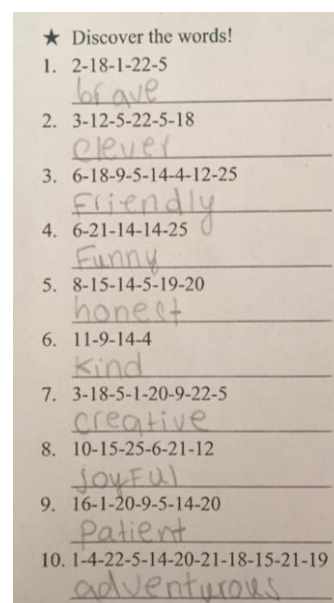 ★ Discover the words!
1. 2-18-1-22-5
brave
2. 3-12-5-22-5-18
Clever
3. 6-18-9-5-14-4-12-25
Friendly
4. 6-21-14-14-25
Funny
5. 8-15-14-5-19-20
honest
6. 11-9-14-4
Kind
7. 3-18-5-1-20-9-22-5
creative
8. 10-15-25-6-21-12
JoyFul
9. 16-1-20-9-5-14-20
Patient
10. 1-4-22-5-14-20-21-18-15-21-19
adventurous